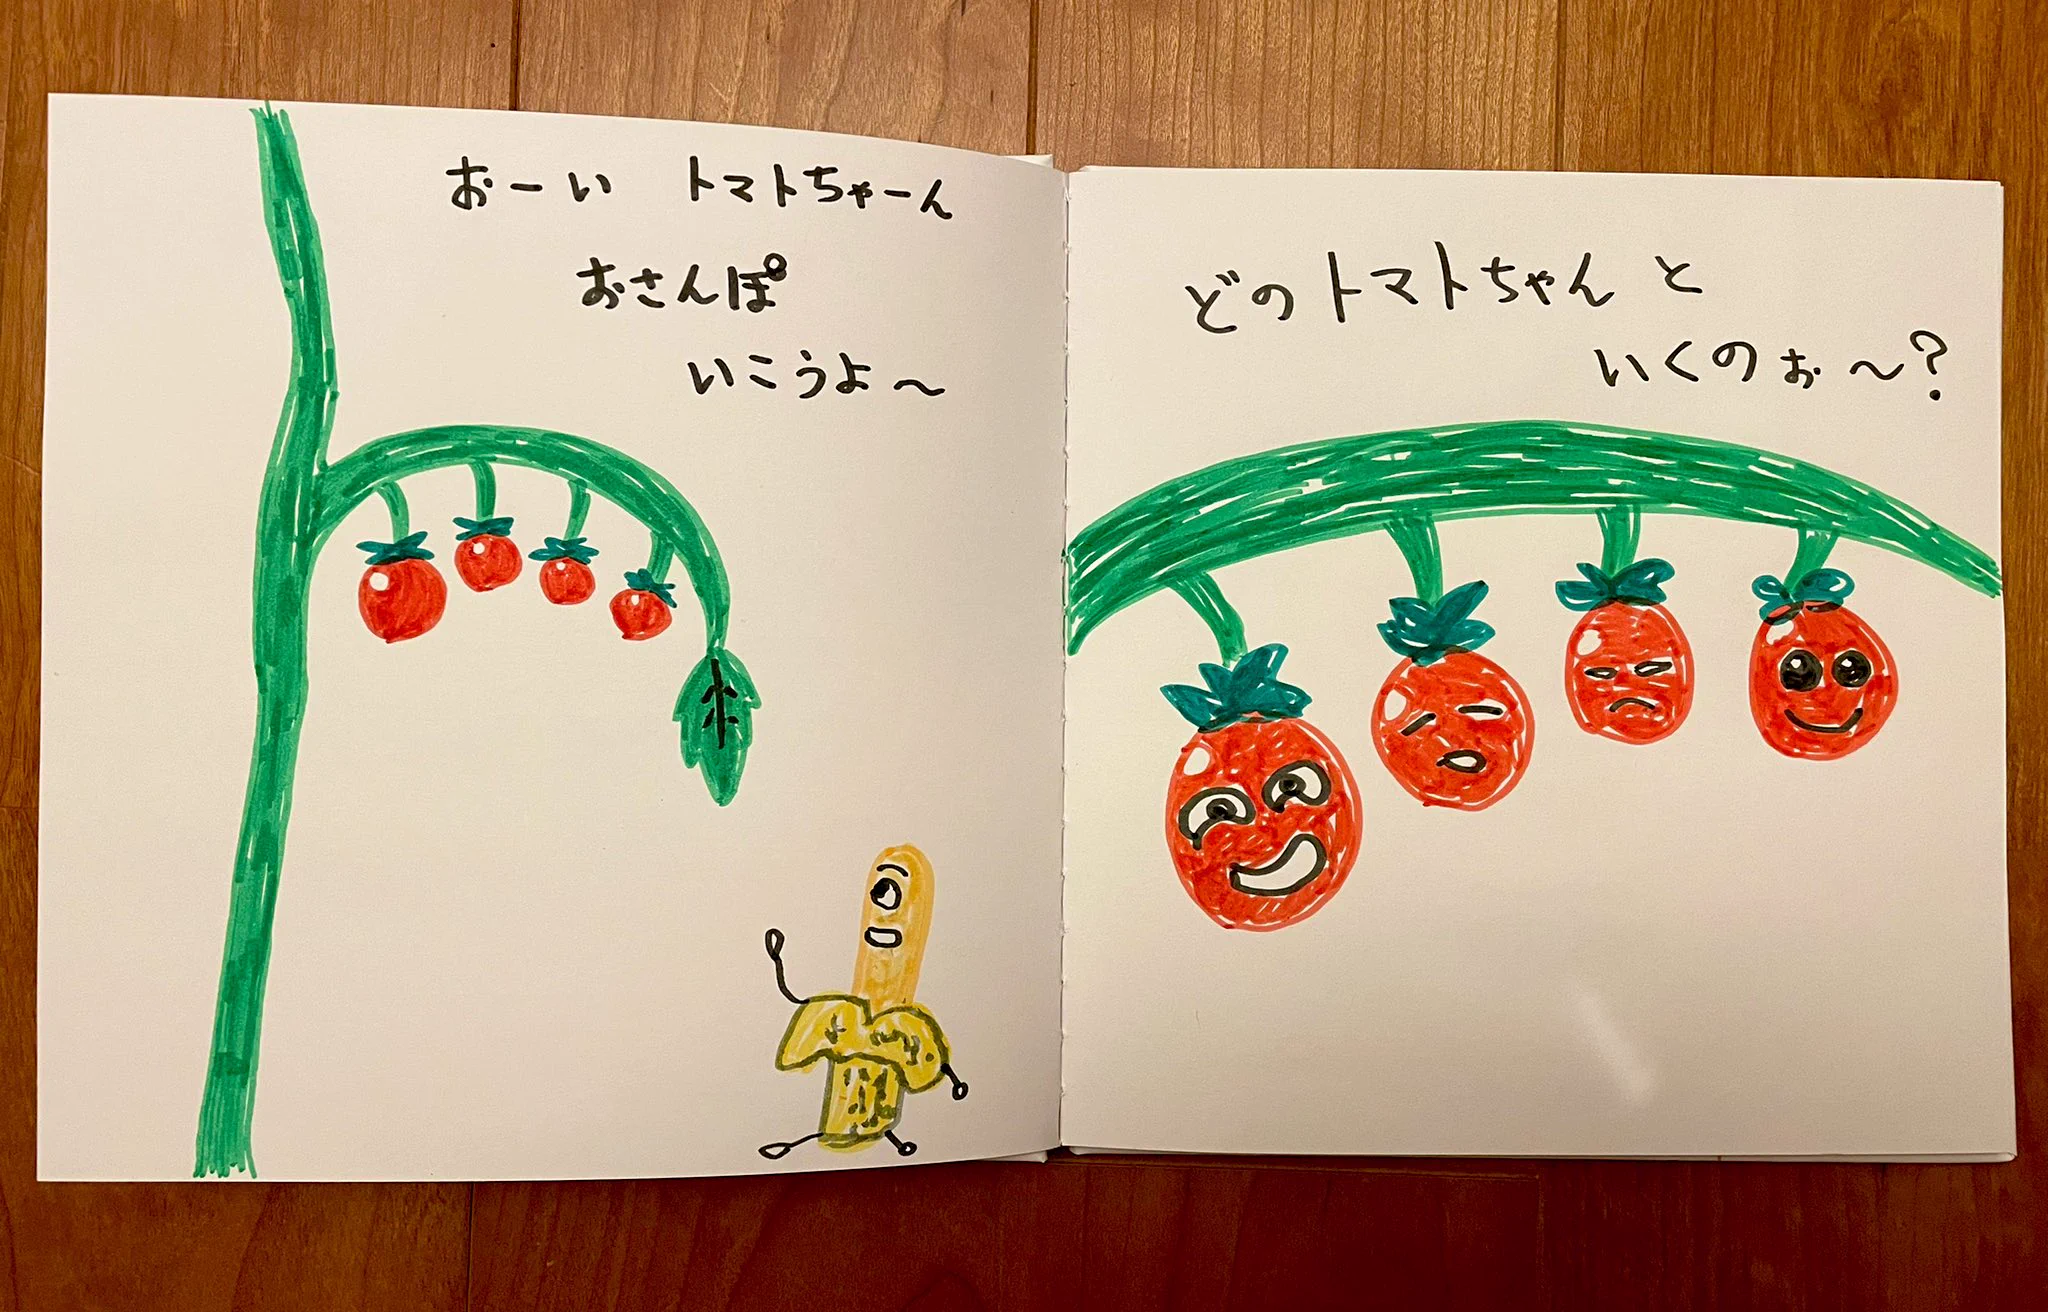 おーい トマトちゃーん
おさんぽ
いこうよ～
どのトマトちゃんと
いくのぉ～?